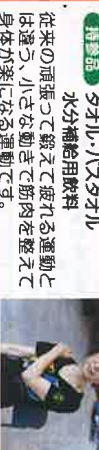 持参品 タオル・バスタオル
水分補給用飲料
従来の頑張って鍛えて疲れる運動と
は違う、小さな動きで筋肉を整えて
身体が楽になる運動です。